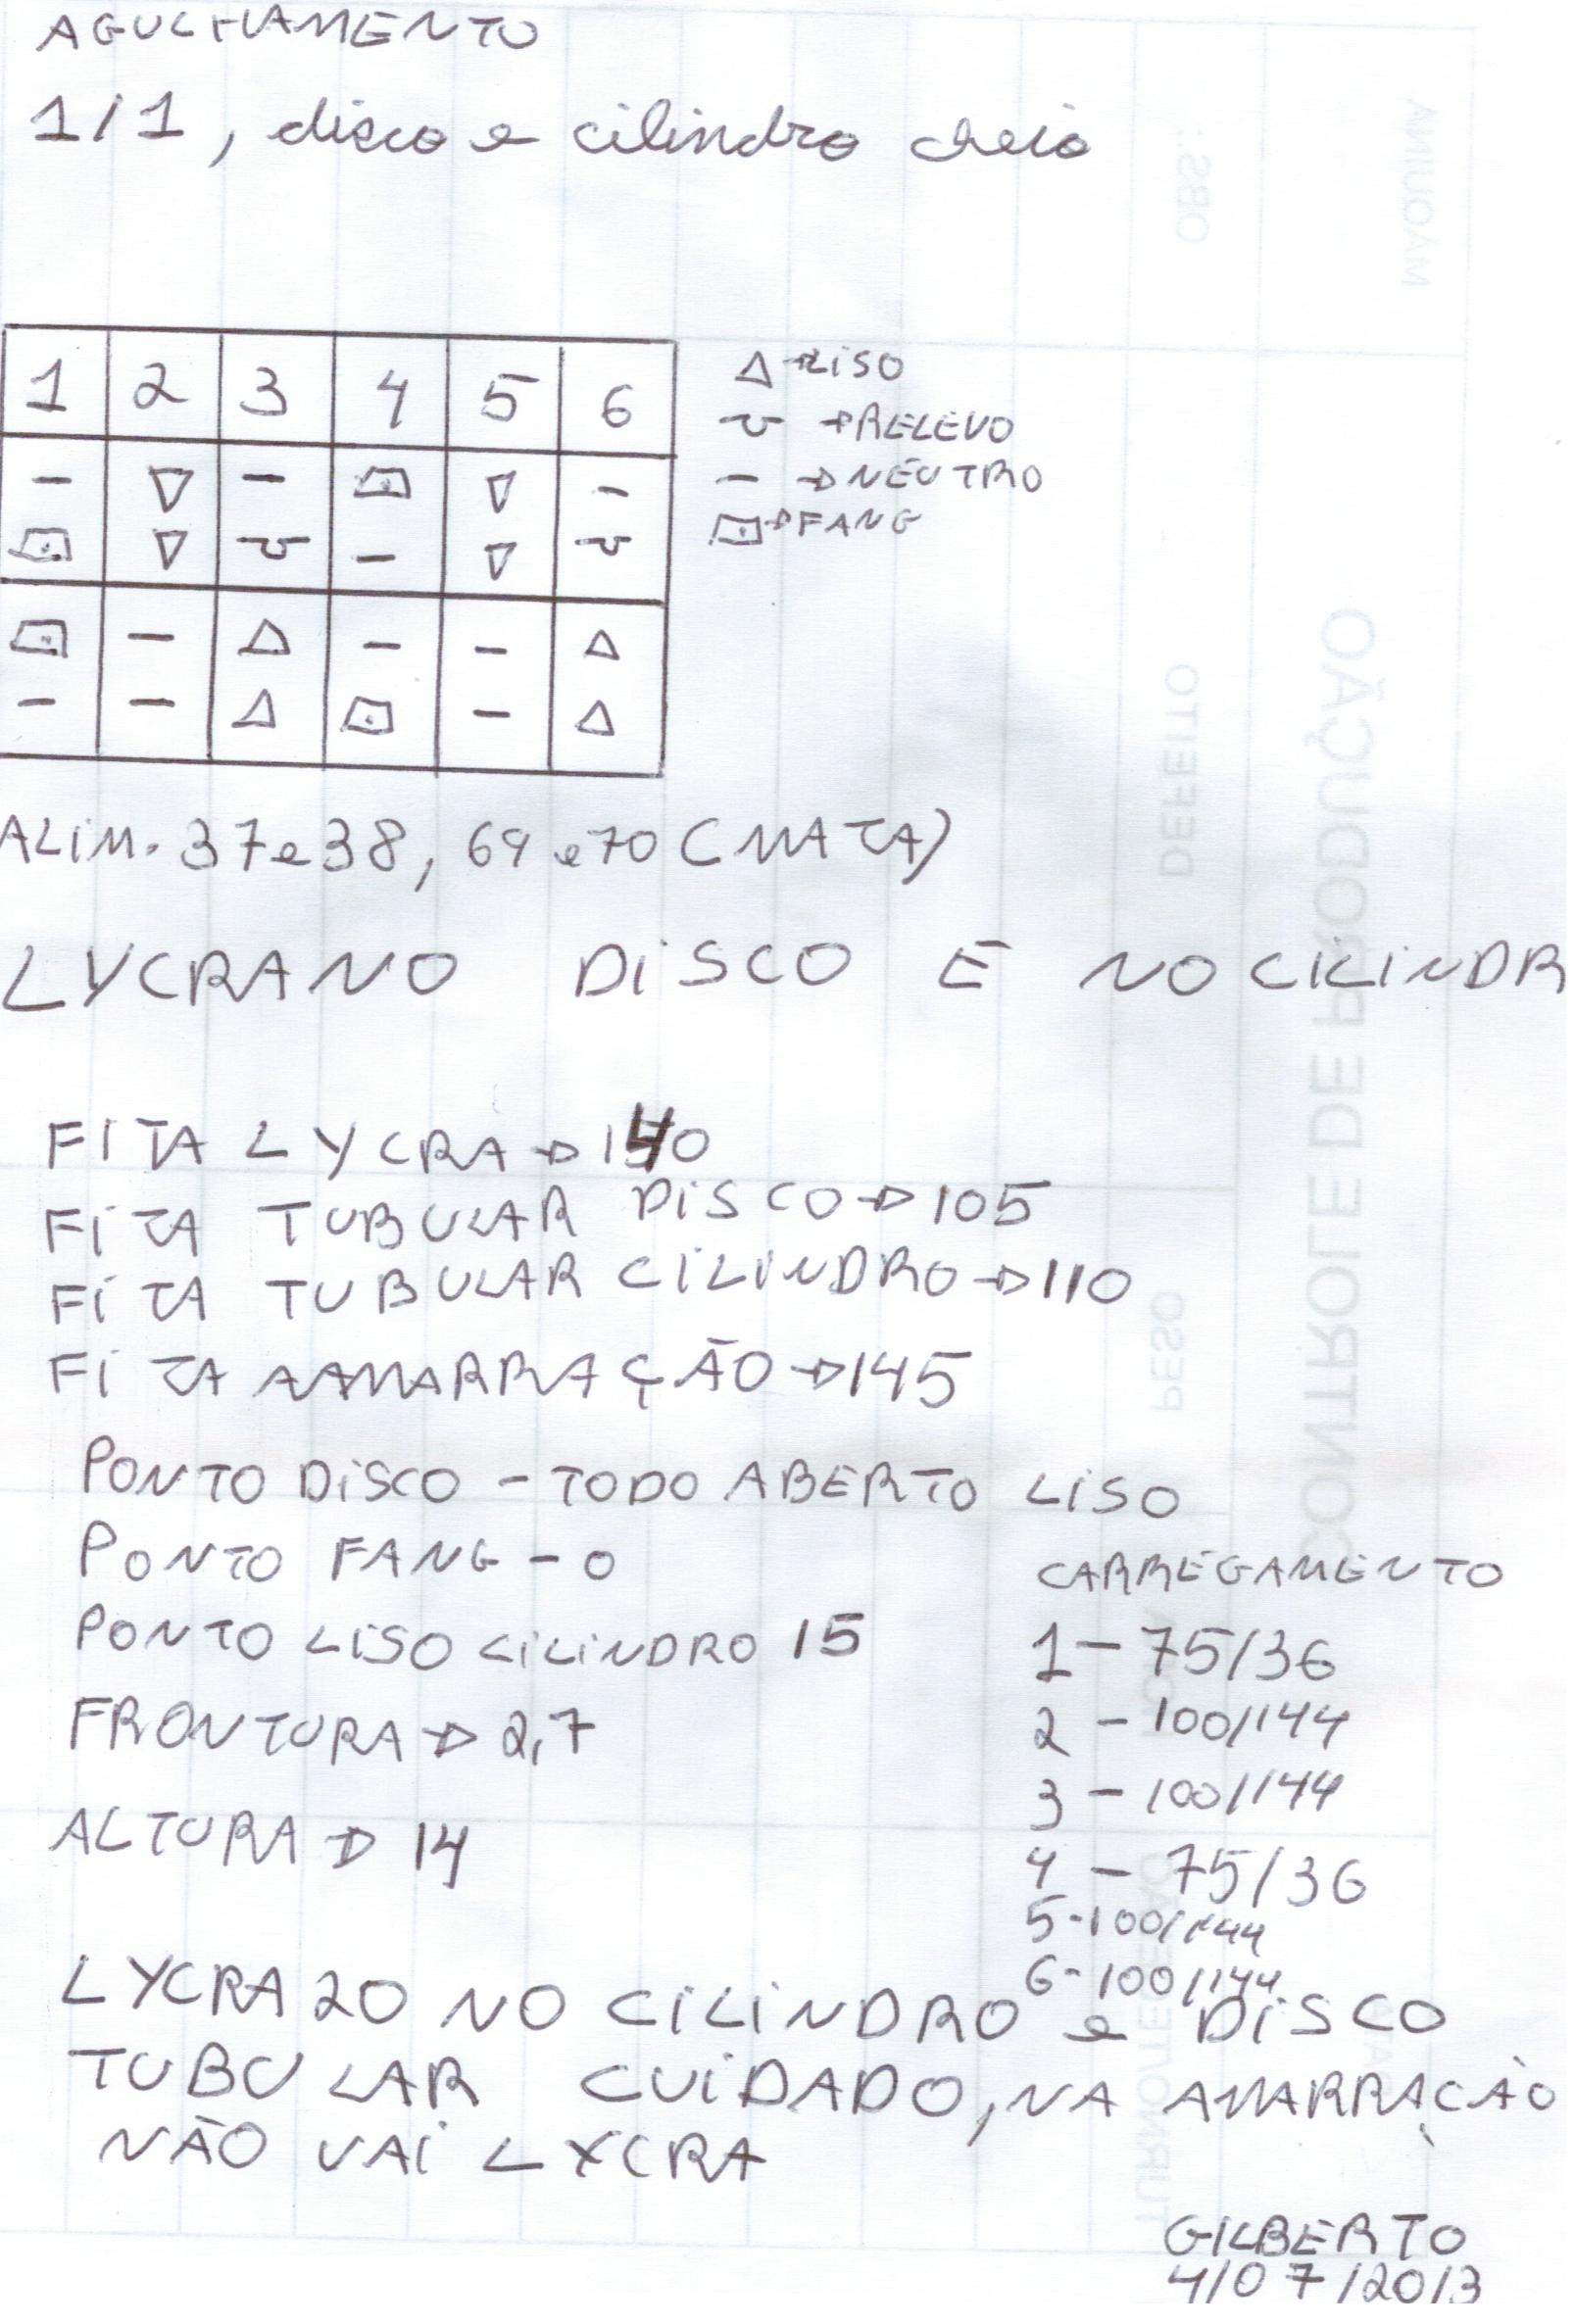 AGULHAMENTO
1/1, disco e cilindro cheio
1 2 3 4 5 6
△→LISO
→RELEVO
- →NEUTRO
→FANG
- ▽ - ▽ -
▽ - ▽
- △ - - △
- - △ - △
ALIM. 37 e 38, 69 e 70 (MATA)
LYCRA NO DISCO E NO CILINDR
FITA LYCRA → 140
FITA TUBULAR DISCO → 105
FITA TUBULAR CILINDRO → 110
FITA AAMARRAÇÃO → 145
PONTO DISCO - TODO ABERTO LISO
PONTO FANG - 0
PONTO LISO CILINDRO 15
FRONTURA → 2,7
ALTURA → 14
CARREGAMENTO
1 - 75/36
2 - 100/144
3 - 100/144
4 - 75/36
5 - 100/144
6 - 100/144
LYCRA 20 NO CILINDRO e DISCO
TUBULAR CUIDADO, NA AMARRAÇÃO
NÃO VAI LYCRA
GILBERTO
4/07/2013
MÁQUINA
OBS.:
CONTROLE DE PRODUÇÃO
DEFEITO
PESO